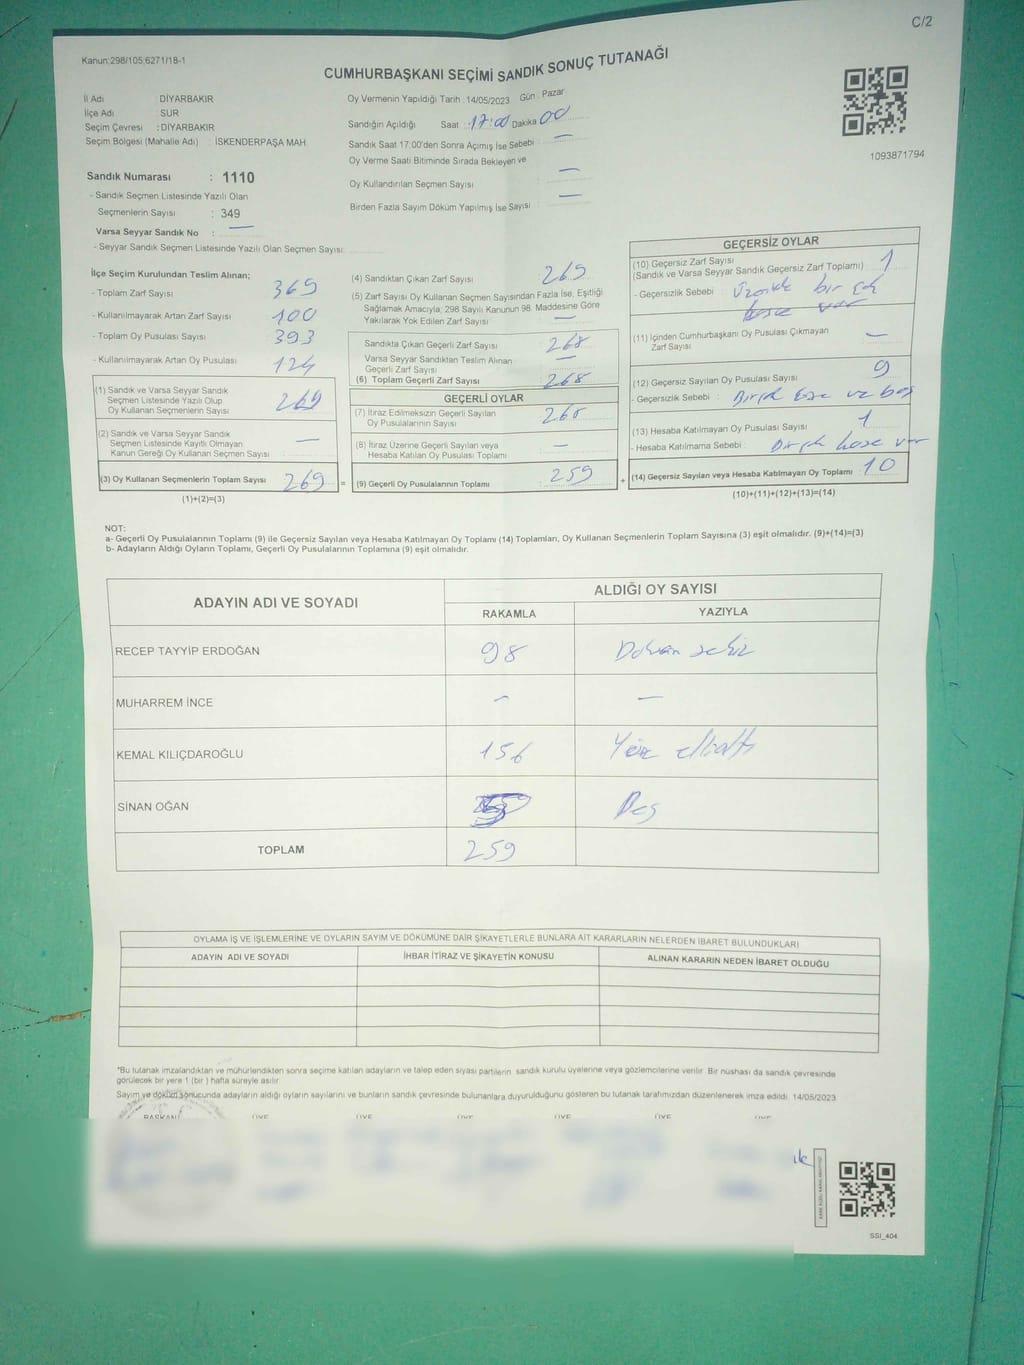 C/2
Kanun:298/105;6271/18-1
CUMHURBAŞKANI SEÇİMİ SANDIK SONUÇ TUTANAĞI
İl Adı DİYARBAKIR
İlçe Adı : SUR
Seçim Çevresi : DİYARBAKIR
Seçim Bölgesi (Mahalle Adı) : İSKENDERPAŞA MAH
Sandık Numarası : 1110
- Sandık Seçmen Listesinde Yazılı Olan
Seçmenlerin Sayısı : 349
Varsa Seyyar Sandık No : —
- Seyyar Sandık Seçmen Listesinde Yazılı Olan Seçmen Sayısı:
Oy Vermenin Yapıldığı Tarih : 14/05/2023 Gün : Pazar
Sandığın Açıldığı Saat : 17:00 Dakika 00
Sandık Saat 17.00'den Sonra Açımış İse Sebebi : —
Oy Verme Saati Bitiminde Sırada Bekleyen ve
Oy Kullandırılan Seçmen Sayısı : —
Birden Fazla Sayım Döküm Yapılmış İse Sayısı : —
1093871794
İlçe Seçim Kurulundan Teslim Alınan;
- Toplam Zarf Sayısı : 369
- Kullanılmayarak Artan Zarf Sayısı : 100
- Toplam Oy Pusulası Sayısı : 393
- Kullanılmayarak Artan Oy Pusulası : 124
(1) Sandık ve Varsa Seyyar Sandık
Seçmen Listesinde Yazılı Olup
Oy Kullanan Seçmenlerin Sayısı : 269
(2) Sandık ve Varsa Seyyar Sandık
Seçmen Listesinde Kayıtlı Olmayan
Kanun Gereği Oy Kullanan Seçmen Sayısı : —
(3) Oy Kullanan Seçmenlerin Toplam Sayısı : 269 =
(1)+(2)=(3)
(4) Sandıktan Çıkan Zarf Sayısı : 269
(5) Zarf Sayısı Oy Kullanan Seçmen Sayısından Fazla İse, Eşitliği
Sağlamak Amacıyla; 298 Sayılı Kanunun 98. Maddesine Göre
Yakılarak Yok Edilen Zarf Sayısı : —
Sandıkta Çıkan Geçerli Zarf Sayısı : 268
Varsa Seyyar Sandıktan Teslim Alınan
Geçerli Zarf Sayısı : —
(6) Toplam Geçerli Zarf Sayısı : 268
GEÇERLİ OYLAR
(7) İtiraz Edilmeksizin Geçerli Sayılan
Oy Pusulalarının Sayısı : 268
(8) İtiraz Üzerine Geçerli Sayılan veya
Hesaba Katılan Oy Pusulası Toplamı : —
(9) Geçerli Oy Pusulalarının Toplamı : 259 +
GEÇERSİZ OYLAR
(10) Geçersiz Zarf Sayısı
(Sandık ve Varsa Seyyar Sandık Geçersiz Zarf Toplamı) : 1
- Geçersizlik Sebebi : Üzerinde bir çok
kaşe var
(11) İçinden Cumhurbaşkanı Oy Pusulası Çıkmayan
Zarf Sayısı : —
(12) Geçersiz Sayılan Oy Pusulası Sayısı : 9
- Geçersizlik Sebebi : Birçok kaşe ve boş
(13) Hesaba Katılmayan Oy Pusulası Sayısı : 1
- Hesaba Katılmama Sebebi : Birçok kaşe var
(14) Geçersiz Sayılan veya Hesaba Katılmayan Oy Toplamı : 10
(10)+(11)+(12)+(13)=(14)
NOT:
a- Geçerli Oy Pusulalarının Toplamı (9) ile Geçersiz Sayılan veya Hesaba Katılmayan Oy Toplamı (14) Toplamları, Oy Kullanan Seçmenlerin Toplam Sayısına (3) eşit olmalıdır. (9)+(14)=(3)
b- Adayların Aldığı Oyların Toplamı, Geçerli Oy Pusulalarının Toplamına (9) eşit olmalıdır.
ADAYIN ADI VE SOYADI ALDIĞI OY SAYISI
RAKAMLA YAZIYLA
RECEP TAYYİP ERDOĞAN 98 Doksan sekiz
MUHARREM İNCE — —
KEMAL KILIÇDAROĞLU 156 Yüz elli altı
SİNAN OĞAN Beş
TOPLAM 259
OYLAMA İŞ VE İŞLEMLERİNE VE OYLARIN SAYIM VE DÖKÜMÜNE DAİR ŞİKAYETLERLE BUNLARA AİT KARARLARIN NELERDEN İBARET BULUNDUKLARI
ADAYIN ADI VE SOYADI İHBAR İTİRAZ VE ŞİKAYETİN KONUSU ALINAN KARARIN NEDEN İBARET OLDUĞU
*Bu tutanak imzalandıktan ve mühürlendikten sonra seçime katılan adayların ve talep eden siyasi partilerin sandık kurulu üyelerine veya gözlemcilerine verilir. Bir nüshası da sandık çevresinde
görülecek bir yere 1 (bir) hafta süreyle asılır.
Sayım ve döküm sonucunda adayların aldığı oyların sayılarını ve bunların sandık çevresinde bulunanlara duyurulduğunu gösteren bu tutanak tarafımızdan düzenlenerek imza edildi. 14/05/2023
BAŞKAN ÜYE ÜYE ÜYE ÜYE ÜYE
SSI_404